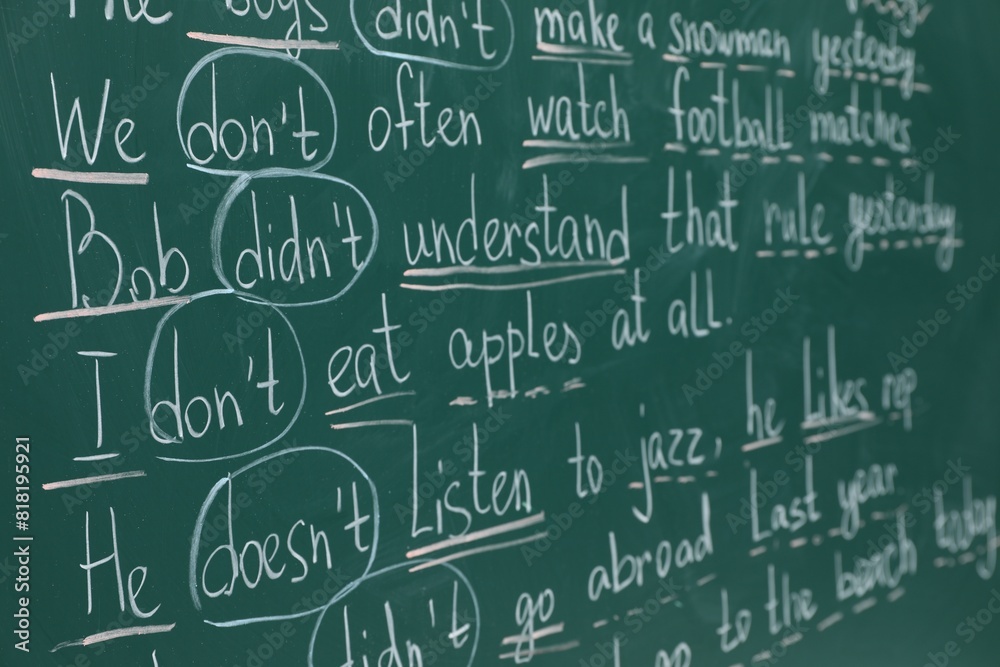 The boys didn't make a snowman yesterday.
We don't often watch football matches
Bob didn't understand that rule yesterday
I don't eat apples at all.
He doesn't Listen to jazz, he Likes rep
didn't go abroad Last year
go to the beach today
Adobe Stock | #818195921